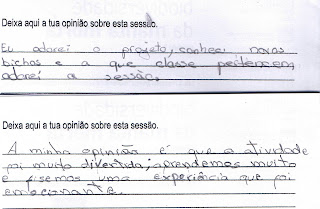 Deixa aqui a tua opinião sobre esta sessão.
Eu adorei o projeto, conheci novos
bichos e a que classe pertencem,
adorei a sessão.
Deixa aqui a tua opinião sobre esta sessão.
A minha opinião é que a atividade
foi muito divertida, aprendemos muito
e fisemos uma experiência que foi
emocionante.